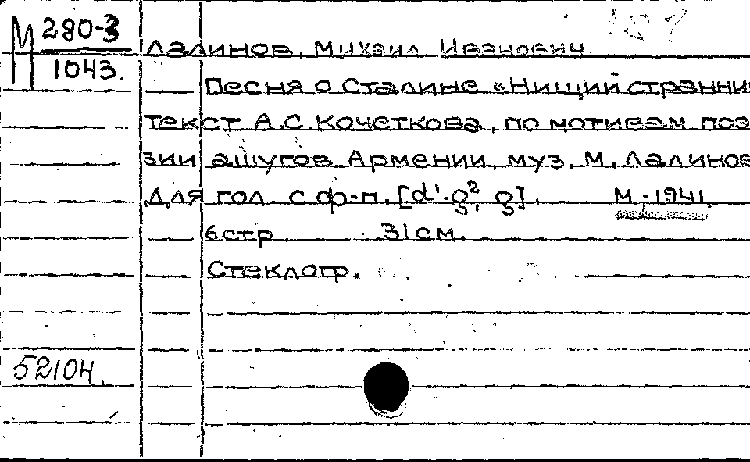 М 280-3
1043.
Лалинов, Михаил Иванович
Песня о Сталине «Нищий странни
текст А.С. Кочеткова, по мотивам поэ
зии ашугов Армении, муз. М. Лалинов
Для гол. с ф-п. [d'-g², g].  М.-1941.
6 стр  31 см.
Стеклогр.
52104.